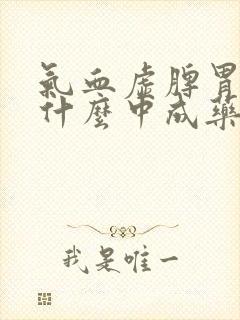 氣血虛脾胃
什麼中成藥
我是唯一